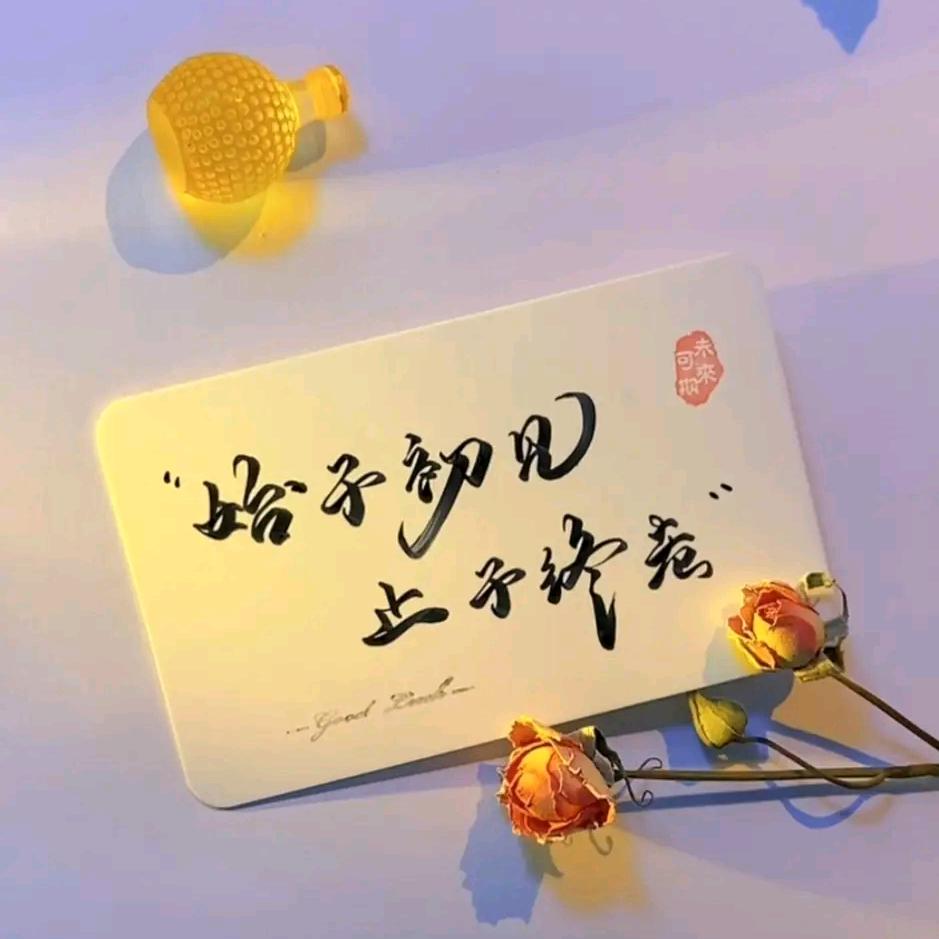 未來可期
“始于初见
止于终老”
Good Luck